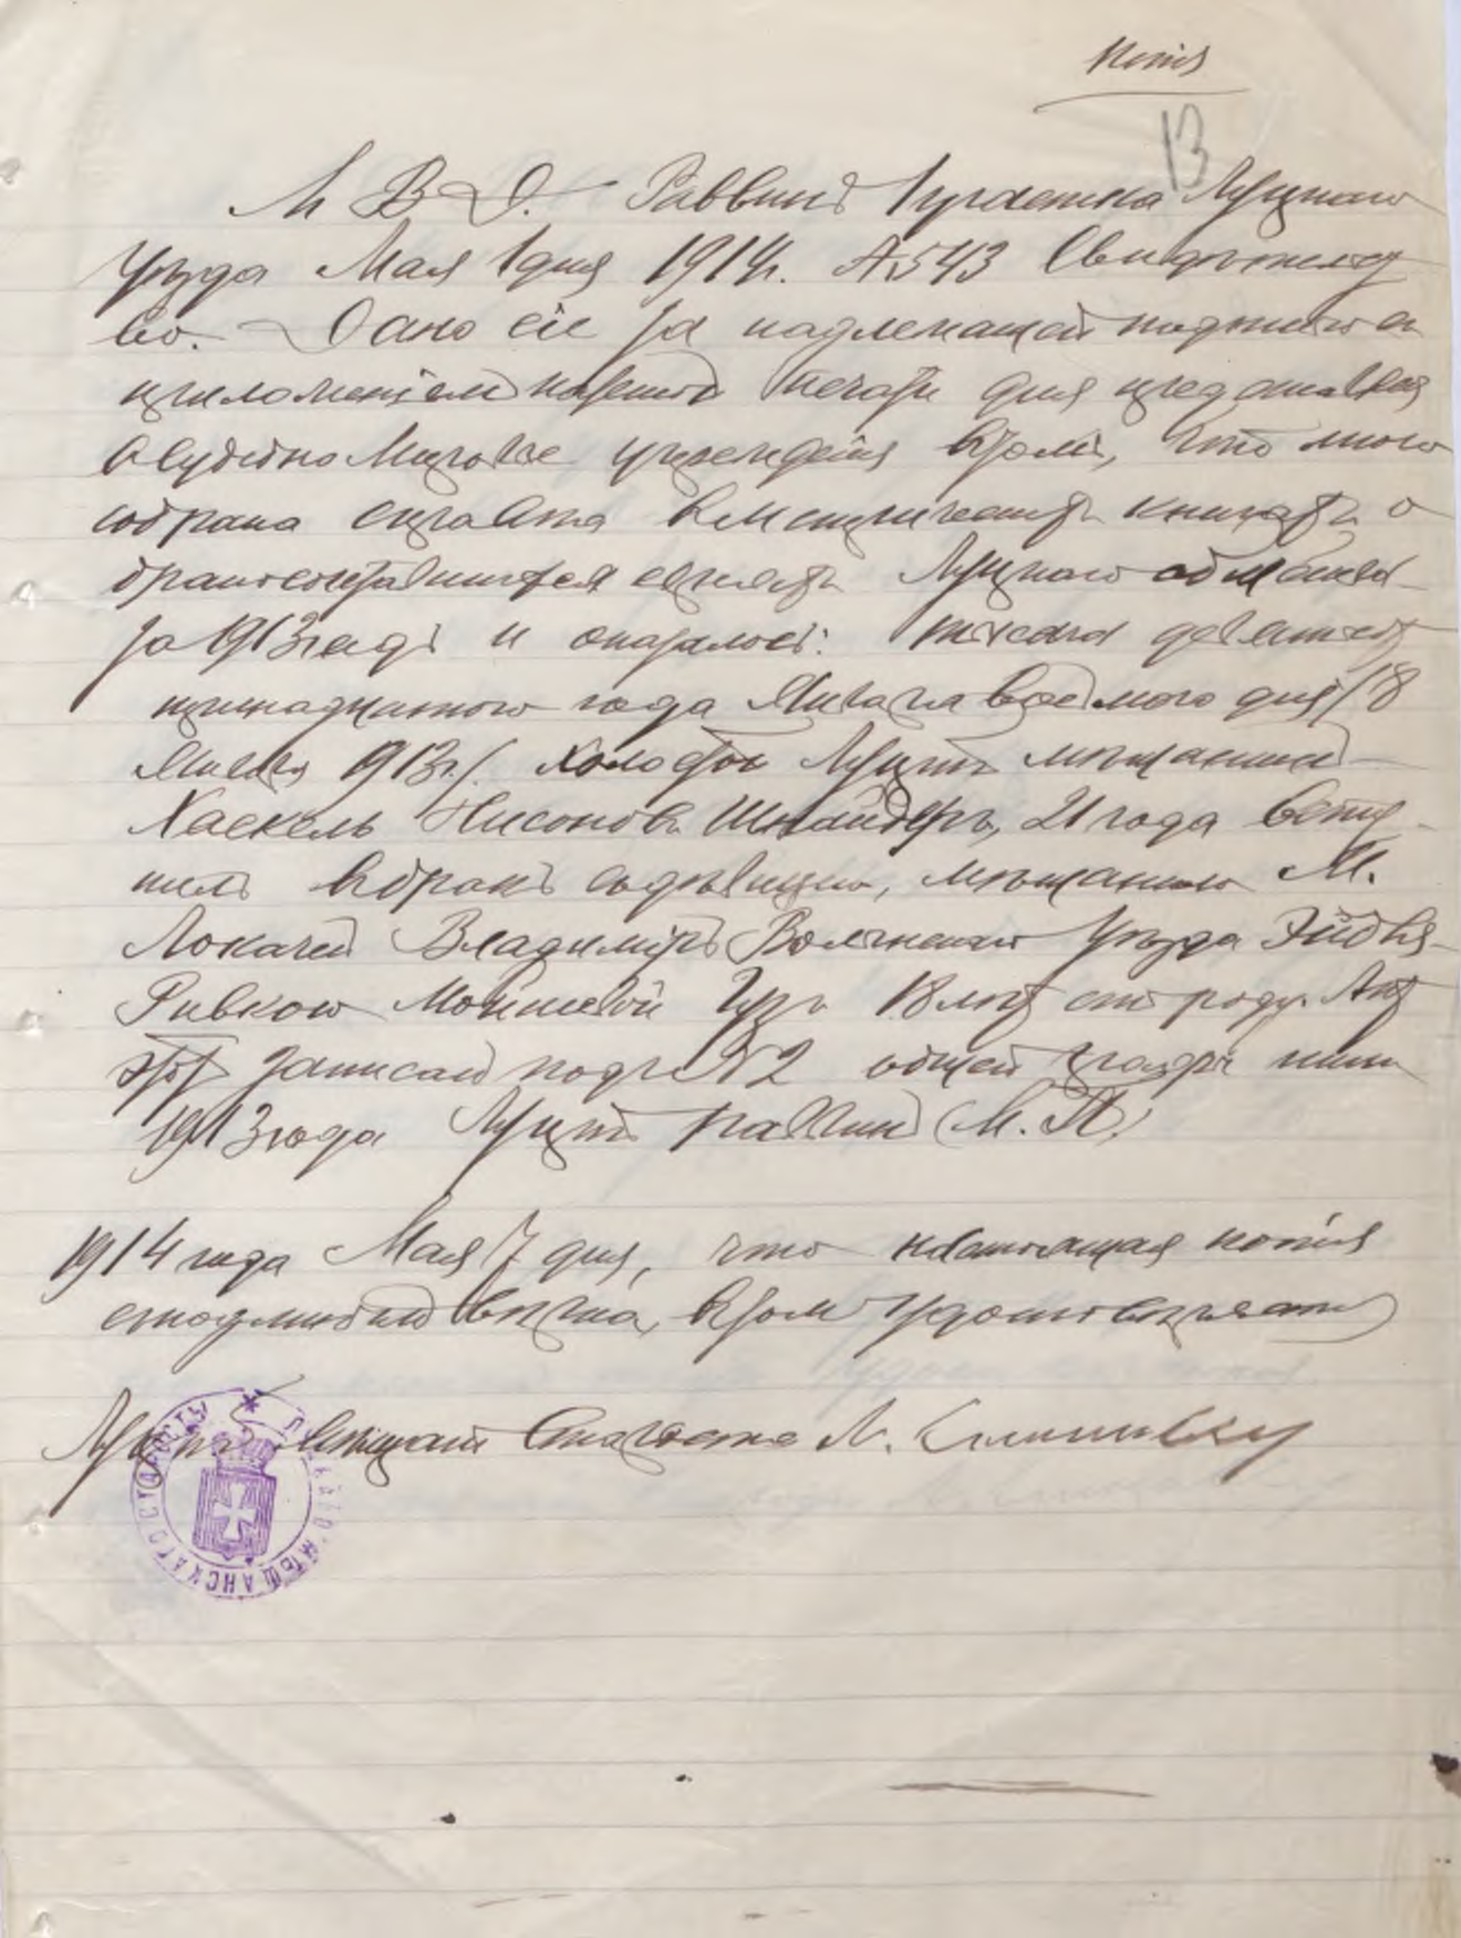 Копія
13
М. В. Д. Раввинъ г. Луцка Луцкаго
уѣзда Мая 1 дня 1914 г. № 543 Свидѣтельст
во. Дано сіе за надлежащей подписью и
приложеніемъ казенной печати для представленія
въ Судебно Мировыя учрежденія въ томъ, что мною
собрана справка въ метрическихъ книгахъ о
бракосочетавшихся евреяхъ Луцкаго общества
за 1913 годъ и оказалось: тысяча девятьсотъ
тринадцатаго года Января восьмого дня /8
Января 1913 г./ холостой Луцкій мѣщанинъ
Хаскель Нисоновъ Шнайдеръ, 21 года всту-
пилъ въ бракъ съ дѣвицею, мѣщанкою М.
Локачей Владиміръ Волынскаго уѣзда Эйдля-
Ривкою Мошковой 18 лѣтъ отъ роду. Актъ
этотъ записанъ подъ № 2 общей графы книги
1913 года Луцкій раввинъ (М. П.)
1914 года Мая 7 дня, что настоящая копія
съ подлинной вѣрна, въ томъ удостовѣряетъ
Луцкій Мѣщанскій Староста Л.
ЛУЦКАГО МѢЩАНСКАГО СТАРОСТЫ